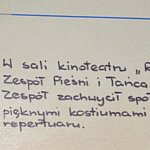 W sali kinoteatru „
Zespół Pieśni i Tańca
Zespół zachwycił
pięknymi kostiumami
repertuaru.